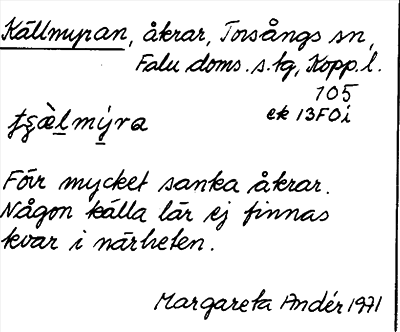 Källmyran, åkrar, Torsångs sn,
Falu doms. s. tg, Kopp. l.
105
ek 13F0i
Förr mycket sanka åkrar.
Någon källa lär ej finnas
kvar i närheten.
Margareta Andér 1971